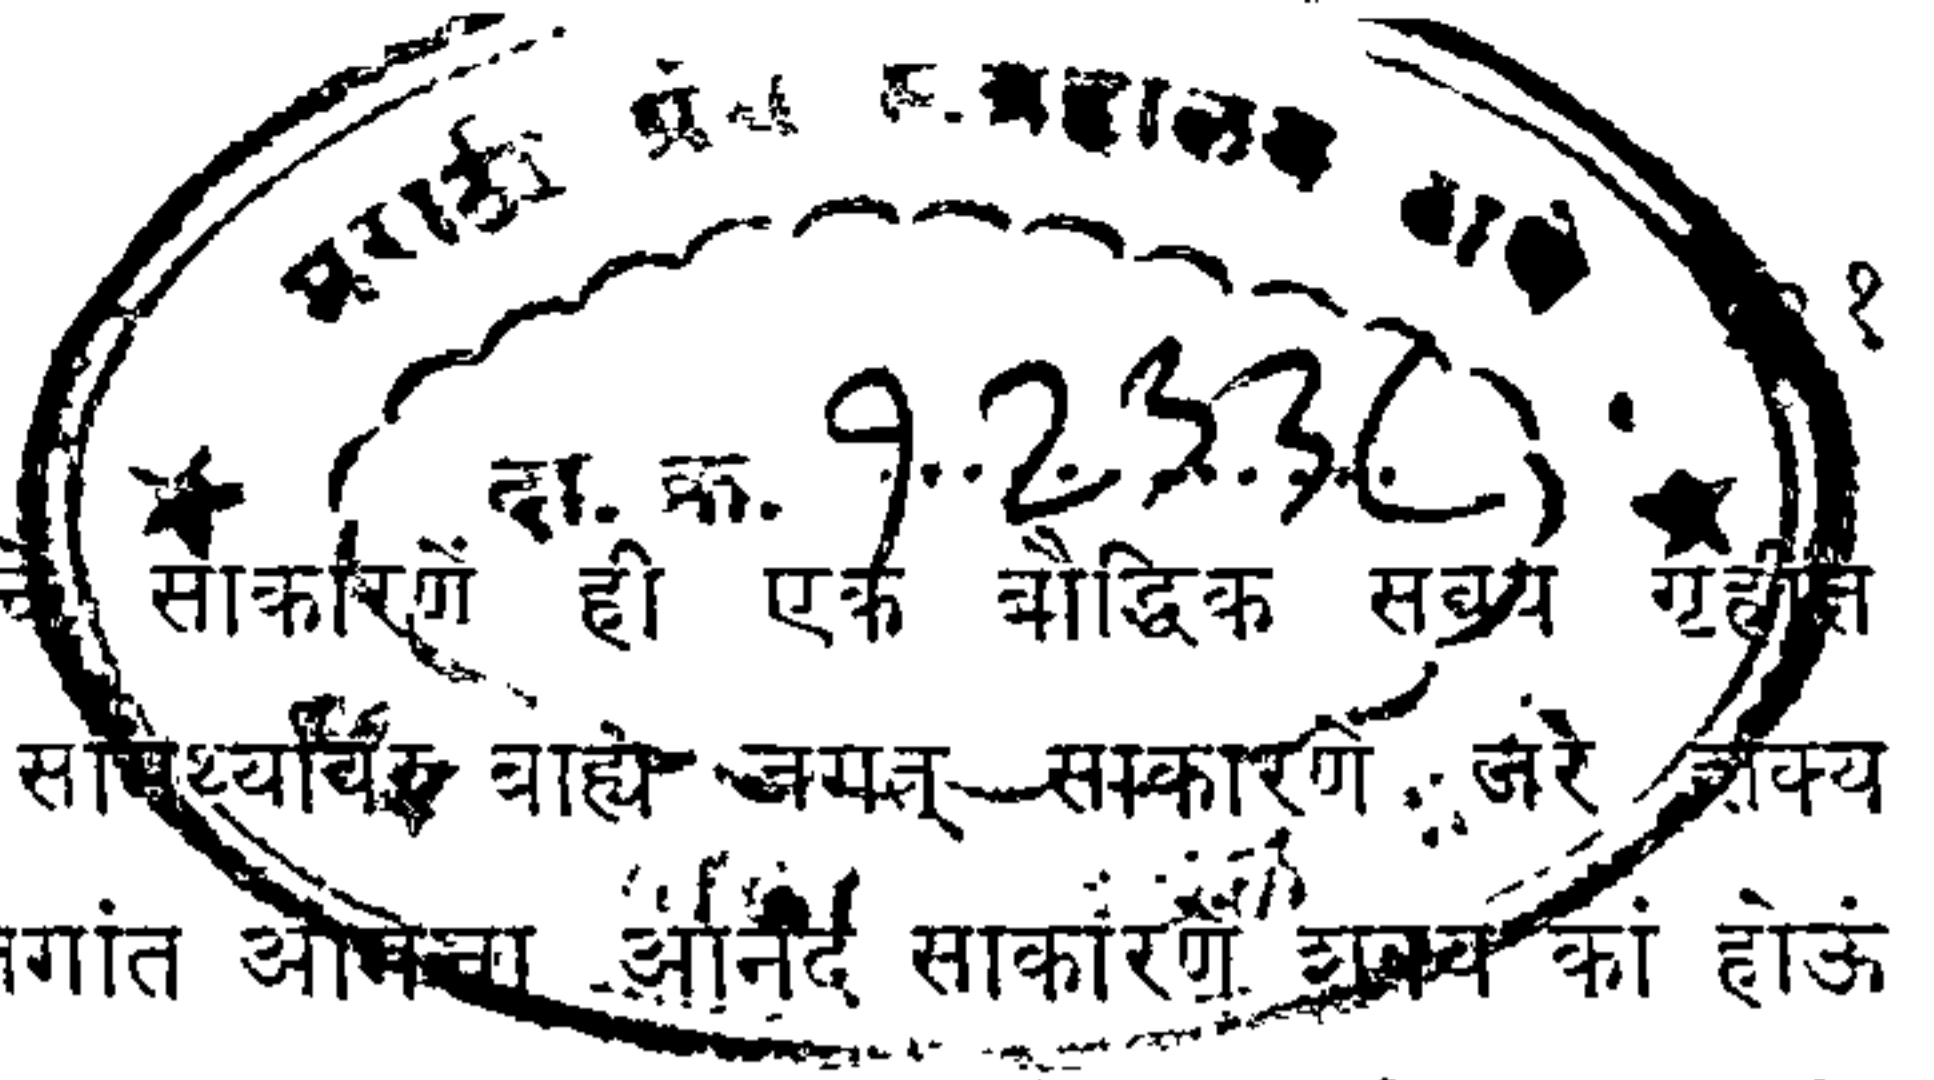 मराठी ग्रंथ संग्रहालय ठाणे
१
दा. क्र. १२३३८
साकारणें ही एक बौद्धिक सवय गृहीत
सामर्थ्यावर बाह्य जगत् साकारणें जरे शक्य
आपला आनंद साकारणें शक्य कां होऊं